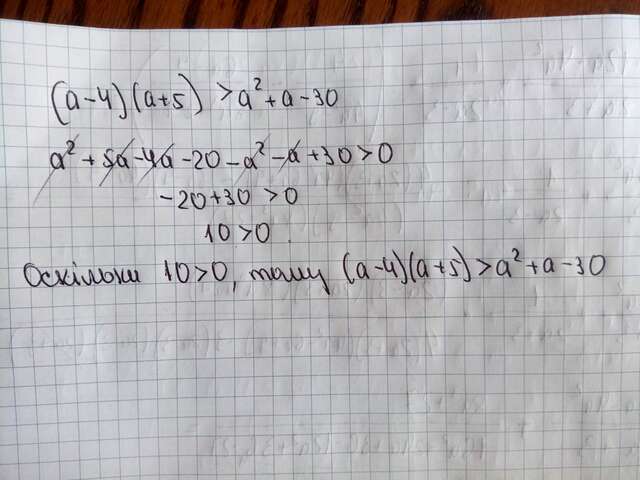 (a-4)(a+5) > a² + a - 30
a² + 5a - 4a - 20 - a² - a + 30 > 0
-20 + 30 > 0
10 > 0
Оскільки 10 > 0, тому (a-4)(a+5) > a² + a - 30